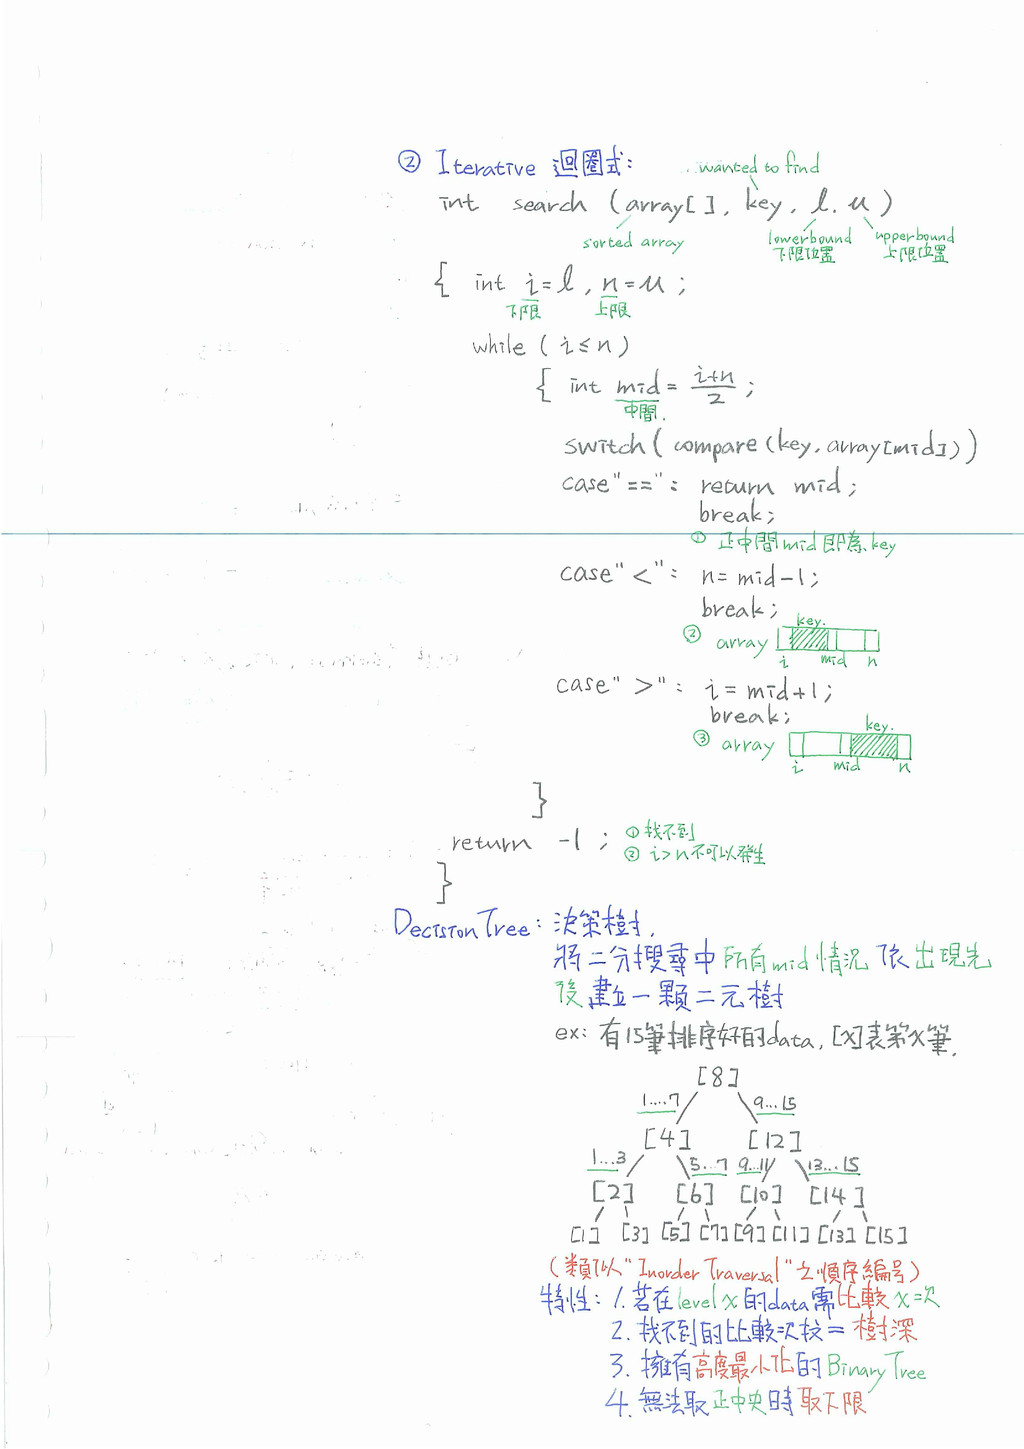 ② Iterative 迴圈式:
wanted to find
int search (array[], key, l, u)
sorted array
lowerbound upperbound
下限位置 上限位置
{ int i=l, n=u;
下限 上限
while (i≤n)
{ int mid = i+n/2;
中間.
switch(compare(key, array[mid]))
case"==": return mid;
break;
① 正中間mid即為key
case"<": n=mid-1;
break;
key.
② array
i mid n
case">": i=mid+1;
break;
key.
③ array
i mid n
}
return -1; ①找不到
② i>n不可以發生
}
Decision Tree: 決策樹.
將二分搜尋中所有mid情況依出現先
後建立一顆二元樹
ex: 有15筆排序好的data, [x]表第x筆.
[8]
1....7 9...15
[4] [12]
1...3 5...7 9...11 13...15
[2] [6] [10] [14]
[1] [3] [5] [7] [9] [11] [13] [15]
(類似"Inorder Traversal"之順序編号)
特性: 1. 若在level x的data需比較x次
2. 找不到的比較次校=樹深
3. 擁有高度最小化的Binary Tree
4. 無法取正中央時取下限